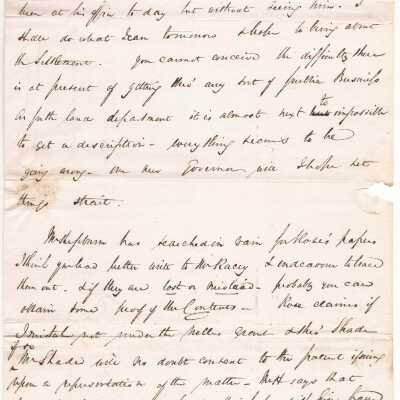 them at his office to day but without seeing him. I
shall do what I can tomorrow & hope to bring about
the Settlement. You cannot conceive the difficulty there
is at present of getting thro' any sort of public Business
in the land department it is almost next to impossible
to get a description - everything seems to be
going wrong - our new Governor will I hope set
things strait.
Mr Hepburn has searched in vain for Rose's papers
I think you had better write to Mr Racey & endeavour to trace
them out. & if they are lost or mislaid - probably you can
obtain some proof of the Contents - Rose claims if
I mistake not under the Nelles grant & thro' Shade
if so
Mr Shade will no doubt consent to the patent issuing
upon a representation of the matter - Mr H says that